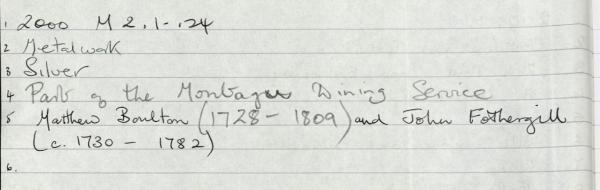 1. 2000 M 2.1-.24
2 Metalwork
3 Silver
4 Part of the Montagu Dining Service
5 Matthew Boulton (1728 - 1809) and John Fothergill
(c. 1730 - 1782)
6.